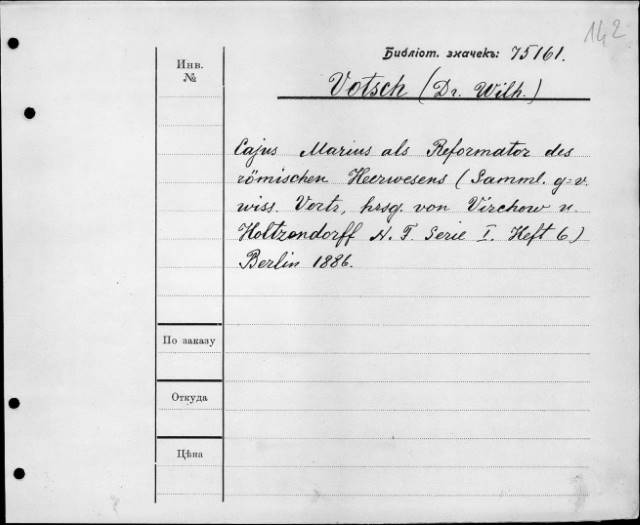 142
Библіот. значекъ: 75161.
Инв.
№
Votsch (Dr. Wilh.)
Cajus Marius als Reformator des
römischen Heerwesens (Samml. g=v.
wiss. Vortr, hrsg. von Virchow u.
Holtzendorff N. F. Serie I. Heft 6)
Berlin 1886.
По заказу
Откуда
Цѣна